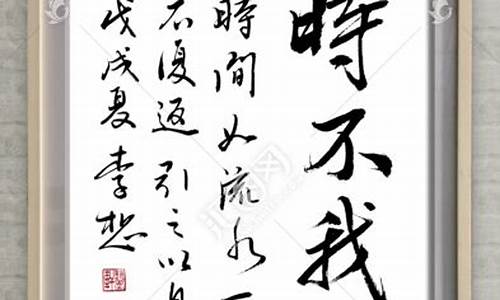 時不我
時間如流水一
不復返 引之以自
戊戌夏 李想